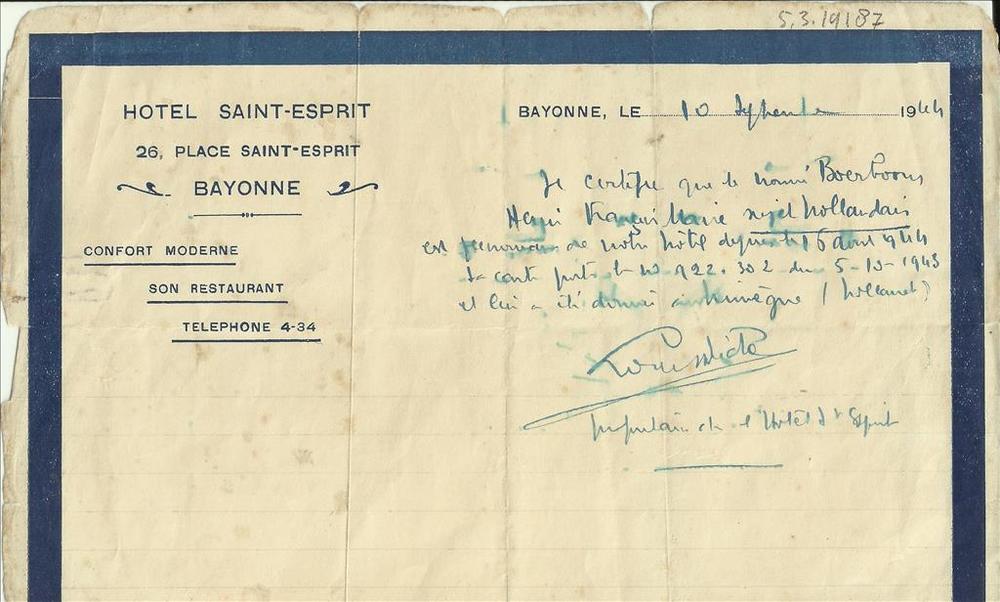 5.3.19187
HOTEL SAINT-ESPRIT
26, PLACE SAINT-ESPRIT
BAYONNE
CONFORT MODERNE
SON RESTAURANT
TELEPHONE 4-34
BAYONNE, LE 10 Septembre 1944
Je certifie que le nommé Boerboom
Henri François Marie sujet hollandais
est pensionnaire de notre hôtel depuis le 16 août 944
Sa carte porte le no 922.302 du 5-10-1943
et lui a été donnée a Nimègue (Hollande)
propriétaire de l'Hôtel St Esprit